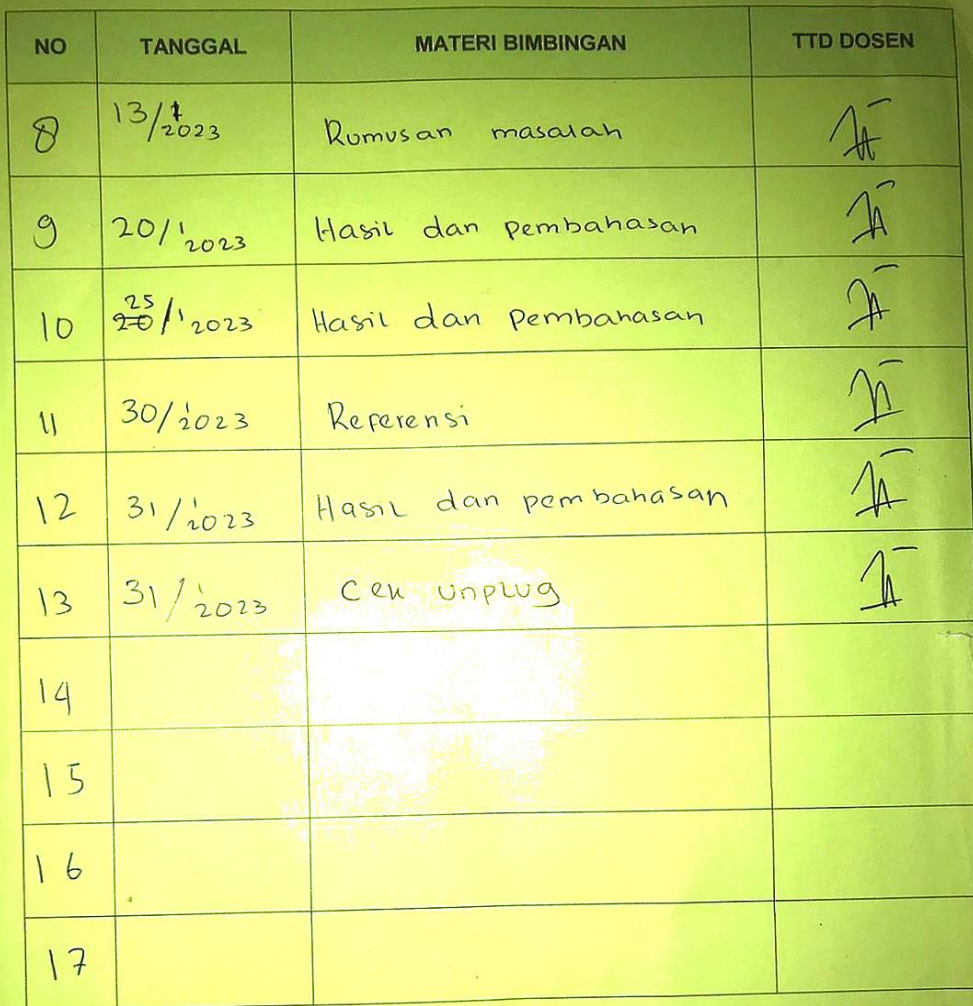 NO TANGGAL MATERI BIMBINGAN TTD DOSEN
8 13/1 2023 Rumusan masalah
9 20/1 2023 Hasil dan pembahasan
10 25 20/1 2023 Hasil dan Pembahasan
11 30/1 2023 Referensi
12 31/1 2023 Hasil dan pembahasan
13 31/1 2023 Cek unplug
14
15
16
17